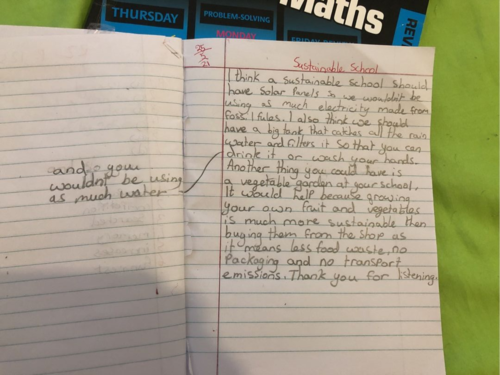 THURSDAY
PROBLEM-SOLVING
MONDAY
Maths
REV
Sustainable School
I think a sustainable school should
have solar Panels so we wouldn't be
using as much electricity made from
fossil fules. I also think we should
have a big tank that catches all the rain
water and filters it so that you can
drink it or wash your hands.
and you
wouldn't be using
as much water
Another thing you could have is
a vegetable garden at your school.
It would help because growing
your own fruit and vegetables
is much more sustainable then
buying them from the shop as
it means less food waste, no
packaging and no transport
emissions. Thank you for listening.